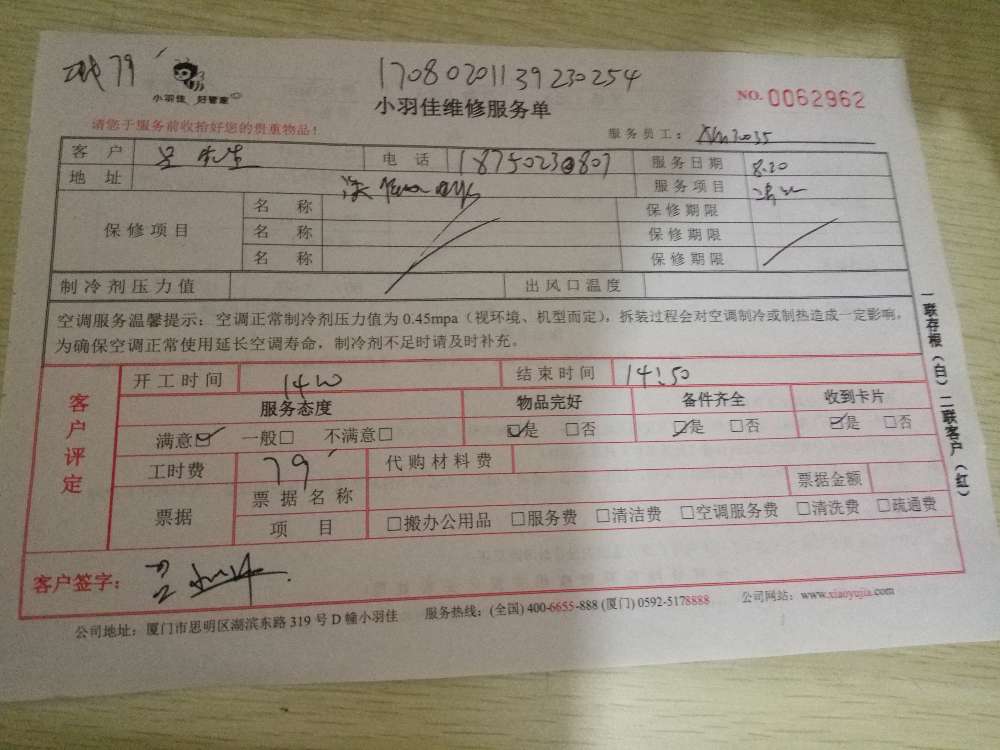 79
17080201139230254
小羽佳 好管家
小羽佳维修服务单
NO. 0062962
请您于服务前收拾好您的贵重物品！
服务员工：
客 户 吕先生 电 话 18750230807 服务日期 8.20
地 址 服务项目
保修项目 名 称 保修期限
名 称 保修期限
名 称 保修期限
制冷剂压力值 出风口温度
空调服务温馨提示：空调正常制冷剂压力值为 0.45mpa（视环境、机型而定），拆装过程会对空调制冷或制热造成一定影响，
为确保空调正常使用延长空调寿命，制冷剂不足时请及时补充。
客户评定
开工时间 结束时间 14:50
服务态度 物品完好 备件齐全 收到卡片
满意☑ 一般□ 不满意□ ☑是 □否 ☑是 □否 ☑是 □否
工时费 79 代购材料费
票据 票据名称 票据金额
项 目 □搬办公用品 □服务费 □清洁费 □空调服务费 □清洗费 □疏通费
客户签字：
公司地址：厦门市思明区湖滨东路 319 号 D 幢小羽佳 服务热线：(全国) 400-6655-888 (厦门) 0592-5178888 公司网站：www.xiaoyujia.com
一联存根（白）二联客户（红）